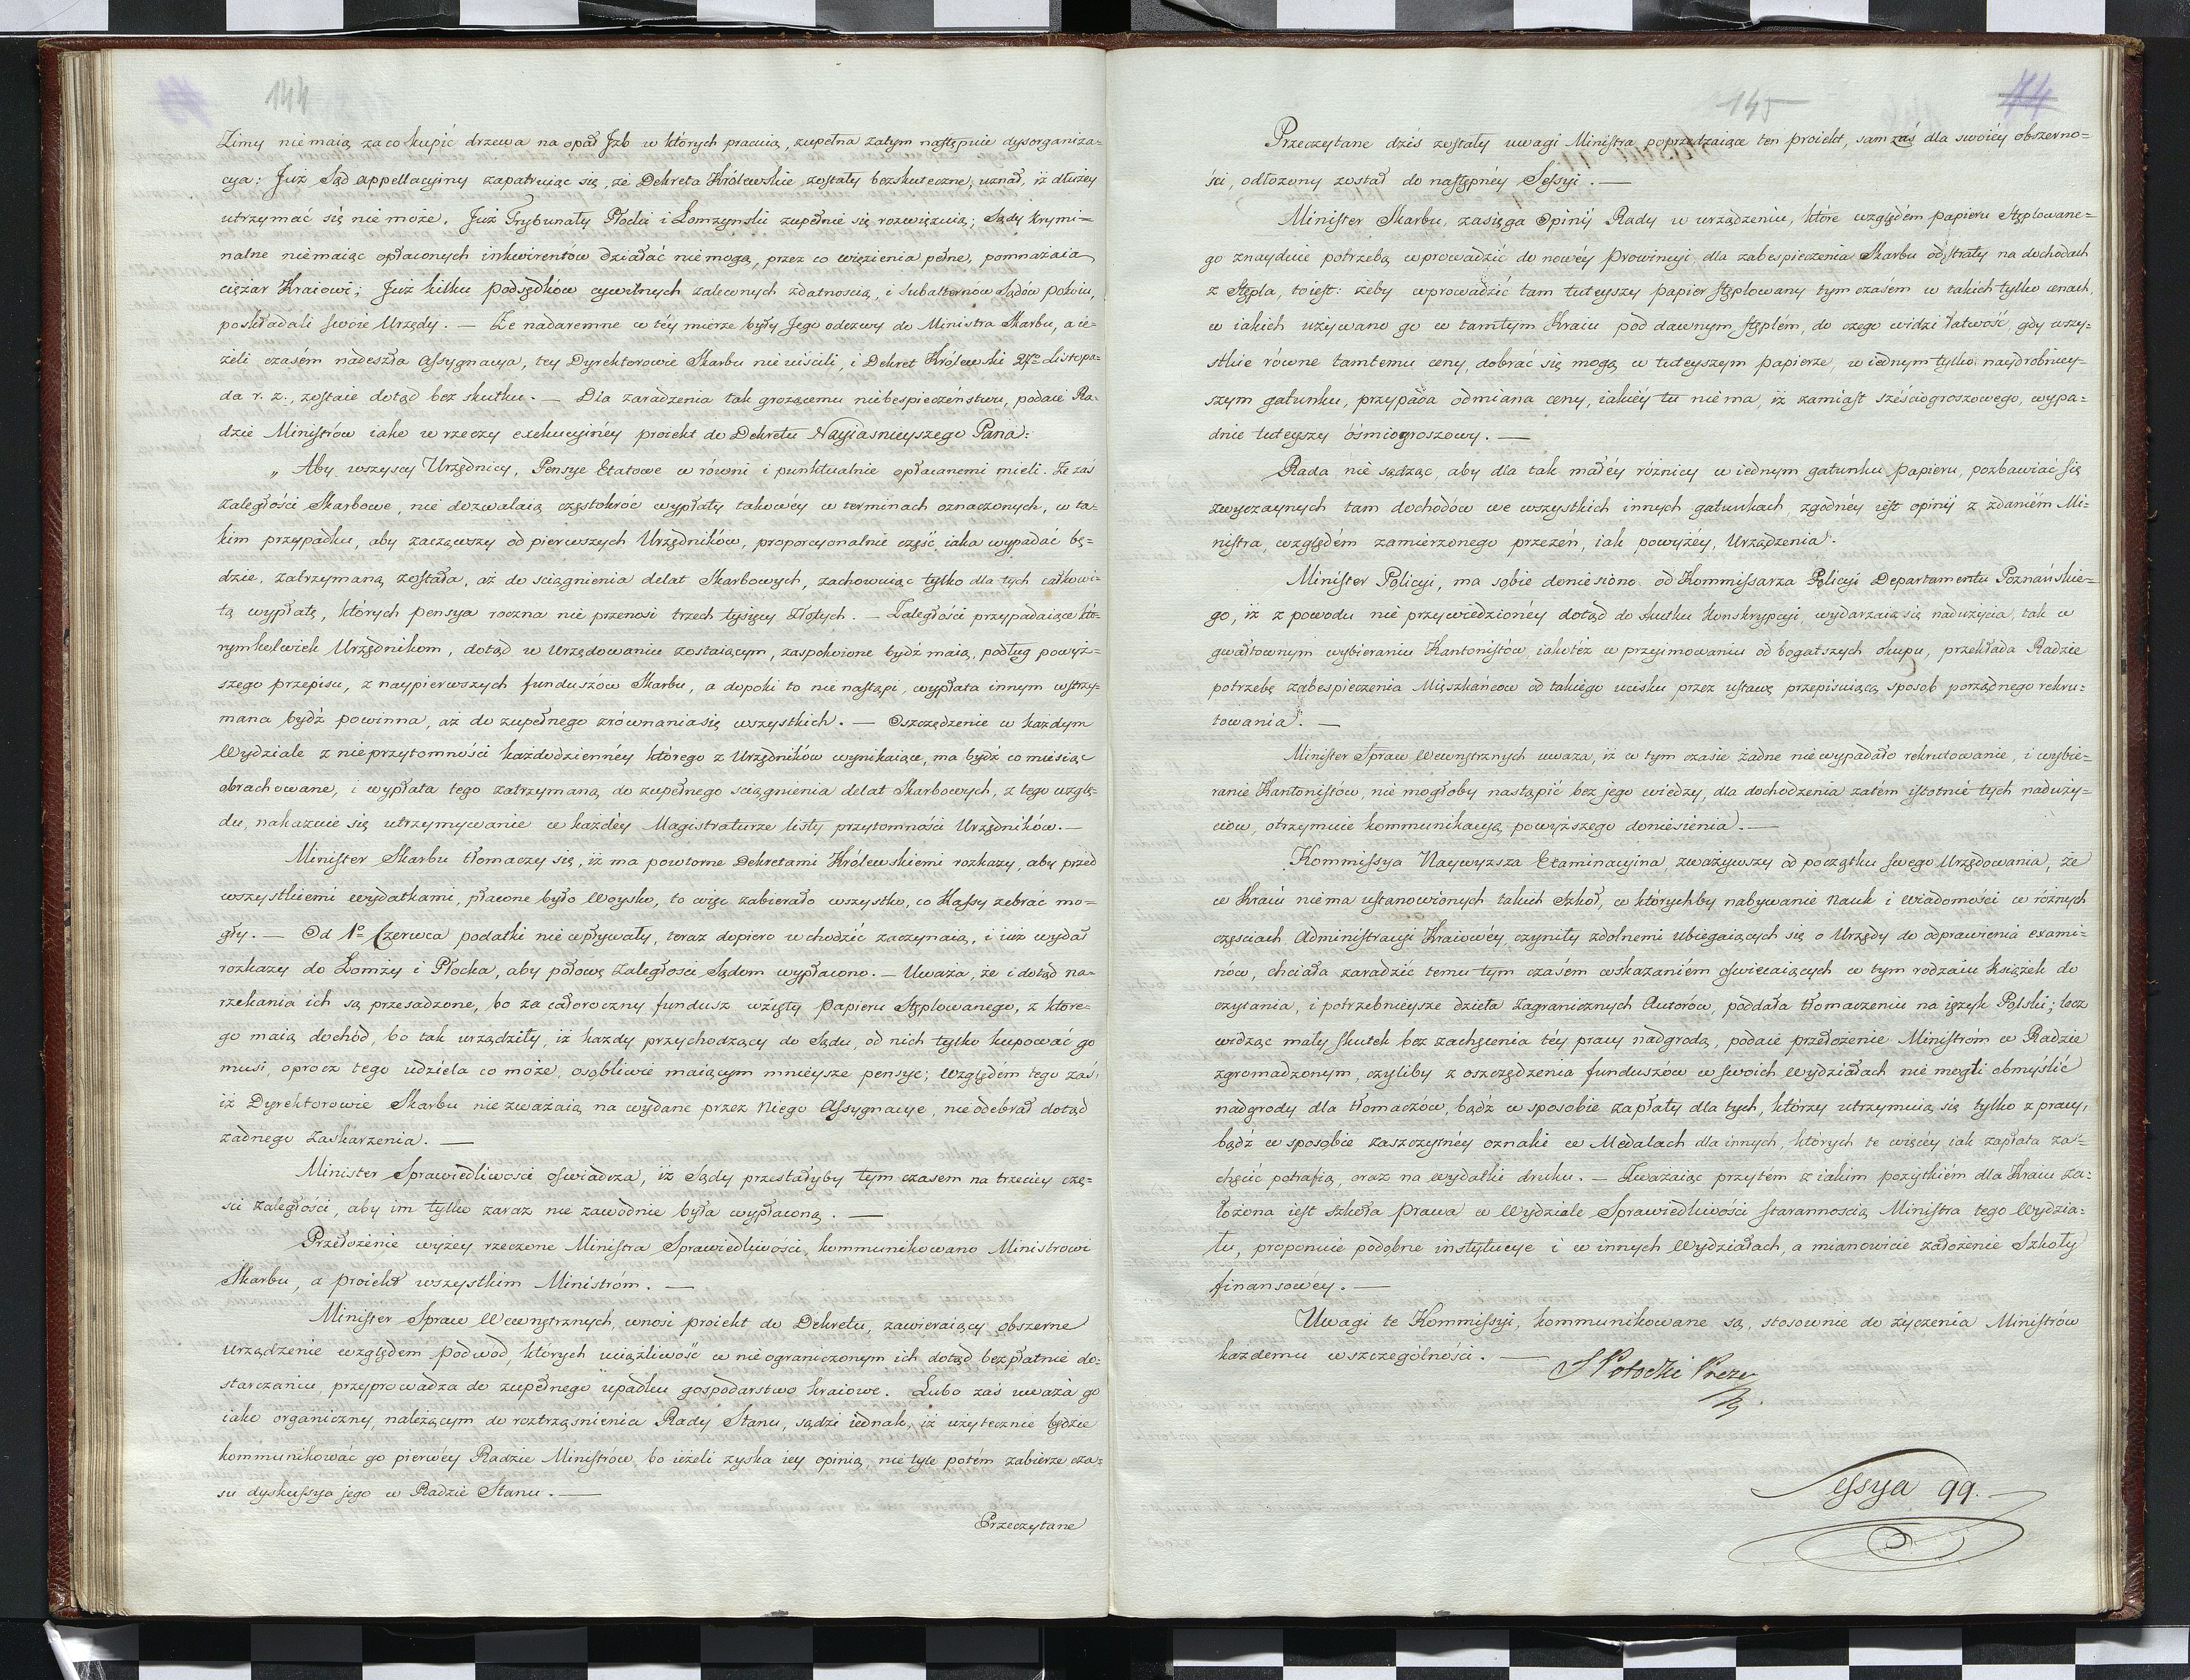 144
Zimy nie maią za co kupić drzewa na opał Jzb w których pracuią, zupełna zatym następuie dysorganiza=
cya: Już Sąd appellacyiny zapatruiąc się, że Dekreta Królewskie zostały bezskuteczne, uznał, iż dłużey
utrzymać się nie może. Już Trybunały Płocki i Łomzynski zupełnie się rozwięzuią; Sądy krymi=
nalne niemaiąc opłaconych inkwirentów działać nie mogą, przez co więzienia pełne, pomnażaią
ciężar Kraiowi; Już kilku Podsędków cywilnych zalecanych zdatnością, i Subalternów Sądów Pokoiu,
poskładali swoie Urzędy. — Ze nadaremne w téy mierze były Jego odezwy do Ministra Skarbu, a ie=
żeli czasém nadeszła Assygnacya, tey Dyrektorowie Skarbu nie uiścili, i Dekret Królewski Listopa=
da r. z., zostaie dotąd bez skutku. — Dla zaradzenia tak grożącemu niebespieczeństwu, podaie Ra=
dzie Ministrów iako w rzeczy exekucyinéy proiekt do Dekretu Nayiasnieyszego Pana:
„ Aby wszyscy Urzędnicy, Pensye Etatowe w równi i punktualnie opłacanemi mieli. Że zaś
zaległości Skarbowe, nie dozwalaią częstokróć wypłaty takowéy w terminach oznaczonych, w ta=
kim przypadku, aby zacząwszy od pierwszych Urzędników, proporcyonalnie część iaka wypadać bę=
dzie, zatrzymaną została, aż do sciągnienia delat Skarbowych, zachowuiąc tylko dla tych całkowi=
tą wypłatę, których pensya roczna nie przenosi trzech tysięcy Złotych. — Zaległości przypadaiące któ=
rymkolwiek Urzędnikom, dotąd w Urzędowaniu zostaiącym, zaspokoione bydź maią, podług powyż=
szego przepisu, z naypierwszych funduszów Skarbu, a dopoki to nie nastąpi, wypłata innym wstrzy=
mana bydź powinna, aż do zupełnego zrównania się wszystkich. — Oszczędzenie w każdym
Wydziale z nieprzytomności każdodzienney którego z Urzędników wynikaiące, ma bydź co miesiąc
obrachowane, i wypłata tego zatrzymaną do zupełnego sciągnienia delat Skarbowych, z tego wzglę=
du, nakazuie się utrzymywanie w każdéy Magistraturze listy przytomności Urzędników. —
Minister Skarbu tłomaczy się, iż ma powtorne Dekretami Królewskiemi rozkazy, aby przed
wszystkiemi wydatkami, płacone było Woysko, to więc zabierało wszystko, co Kassy zebrać mo=
gły. — Od 1º Czerwca podatki nie wpływały, teraz dopiero wchodzić zaczynaią, i iuż wydał
rozkazy do Łomży i Płocka, aby połowę zaległości Sądom wypłacono. — Uważa, że i dotąd na=
rzekania ich są przesadzone, bo za całoroczny fundusz wzięty Papieru Stęplowanego, z które=
go maią dochód, bo tak urządziły, iż każdy przychodzący do Sądu, od nich tylko kupować go
musi, oprocz tego udziela co może, osobliwie maiącym mnieysze pensye; Względém tego zaś,
iż Dyrektorowie Skarbu nie zważaią na wydane przez Niego Assygnacye, nie odebrał dotąd
żadnego zaskarżenia. —
Minister Sprawiedliwości oświadcza, iż Sądy przestałyby tym czasem na trzeciey czę=
ści zaległości, aby im tylko zaraz nie zawodnie była wypłaconą. —
Przełożenie wyżey rzeczone Ministra Sprawiedliwości kommunikowano Ministrowi
Skarbu, a proiekt wszystkim Ministróm. —
Minister Spraw Wewnętrznych, wnosi proiekt do Dekretu, zawieraiący obszerne
Urządzenie względem podwod, których uciążliwość w nie ograniczonym ich dotąd bezpłatnie do=
starczaniu, przyprowadza do zupełnego upadku gospodarstwo kraiowe. Lubo zaś uważa go
iako organiczny, należącym do roztrząsnienia Rady Stanu, sądzi iednak, iż użytecznie będzie
kommunikować go pierwéy Radzie Ministrów, bo ieżeli zyska iey opinią, nie tyle potém zabierze cza=
su dyskussya jego w Radzie Stanu. —
Przeczytane
145
74
Przeczytane dziś zostały uwagi Ministra poprzedzaiące ten proiekt, sam zaś dla swoiéy obszerno=
ści, odłożony został do następnéy Sessyi. —
Minister Skarbu, zasięga Opinii Rady w urządzeniu, które względém papieru Stęplowane=
go znayduie potrzebą wprowadzić do nowéy Prowincyi dla zabespieczenia Skarbu od straty na dochodach
z Stępla, to iest: żeby wprowadzić tam tuteyszy papier stęplowany tym czasém w takich tylko cenach,
w iakich używano go w tamtym Kraiu pod dawnym stęplém, do czego widzi łatwość, gdy wszy=
stkie równe tamtemu ceny, dobrać się mogą w tuteyszym papierze, w iednym tylko naydrobniey=
szym gatunku, przypada odmiana ceny, iakiéy tu niema, iż zamiast sześciogroszowego, wypa=
dnie tuteyszy ósmiogroszowy. —
Rada nie sądząc, aby dla tak małéy różnicy w iednym gatunku papieru, pozbawiać się
zwyczaynych tam dochodów we wszystkich innych gatunkach, zgodnéy iest opinii z zdaniém Mi=
nistra, względém zamierzonego przezeń, iak powyżéy, Urządzenia.
Minister Policyi, ma sobie doniesiono od Kommissarza Policyi Departamentu Poznańskie=
go, iż z powodu nie przywiedzionéy dotąd do skutku Konskrypcyi, wydarzaią się nadużycia, tak w
gwałtownym wybieraniu Kantonistów, iakotéż w przyimowaniu od bogatszych okupu, przekłada Radzie
potrzebę zabespieczenia Mieszkańców od takiego ucisku przez ustawę przepisuiącą sposób porządnego rekru=
towania. —
Minister Spraw Wewnętrznych uważa, iż w tym czasie żadne nie wypadało rekrutowanie, i wybie=
ranie Kantonistów, nie mogłoby nastąpić bez jego wiedzy, dla dochodzenia zatém istotnie tych naduży=
ciów, otrzymuie kommunikacyą powyższego doniesienia. —
Kommissya Naywyższa Examinacyina, zważywszy od początku swego Urzędowania, że
w Kraiu niema ustanowionych takich Szkół, w którychby nabywanie nauk i wiadomości w różnych
częściach Administracyi Kraiowéy, czyniły zdolnemi ubiegaiących się o Urzędy do odprawienia exami=
nów, chciała zaradzić temu tym czasém wskazaniém oświecaiących w tym rodzaiu Książek do
czytania, i potrzebnieysze dzieła zagranicznych Autorów, poddała tłomaczeniu na ięzyk Polski; lecz
widząc mały skutek bez zachęcenia téy pracy nadgrodą, podaie przełożenie Ministróm w Radzie
zgromadzonym, czyliby z oszczędzenia funduszów w swoich Wydziałach nie mogli obmyślić
nadgrody dla tłomaczów, bądź w sposobie zapłaty dla tych, którzy utrzymuią się tylko z pracy,
bądź w sposobie zaszczytnéy oznaki w Medalach dla innych, których te więcéy iak zapłata za=
chęcić potrafią, oraz na wydatki druku. — Zważaiąc przytém z iakim pożytkiém dla Kraiu za=
łożona iest Szkoła Prawa w Wydziale Sprawiedliwości starannością Ministra tego Wydzia=
łu, proponuie podobne instytucye i w innych Wydziałach, a mianowicie założenie Szkoły
finansowéy. —
Uwagi te Kommissyi, kommunikowane są, stosownie do życzenia Ministrów
każdemu w szczególności. —
S Potocki Prezes
Sessya 99. —